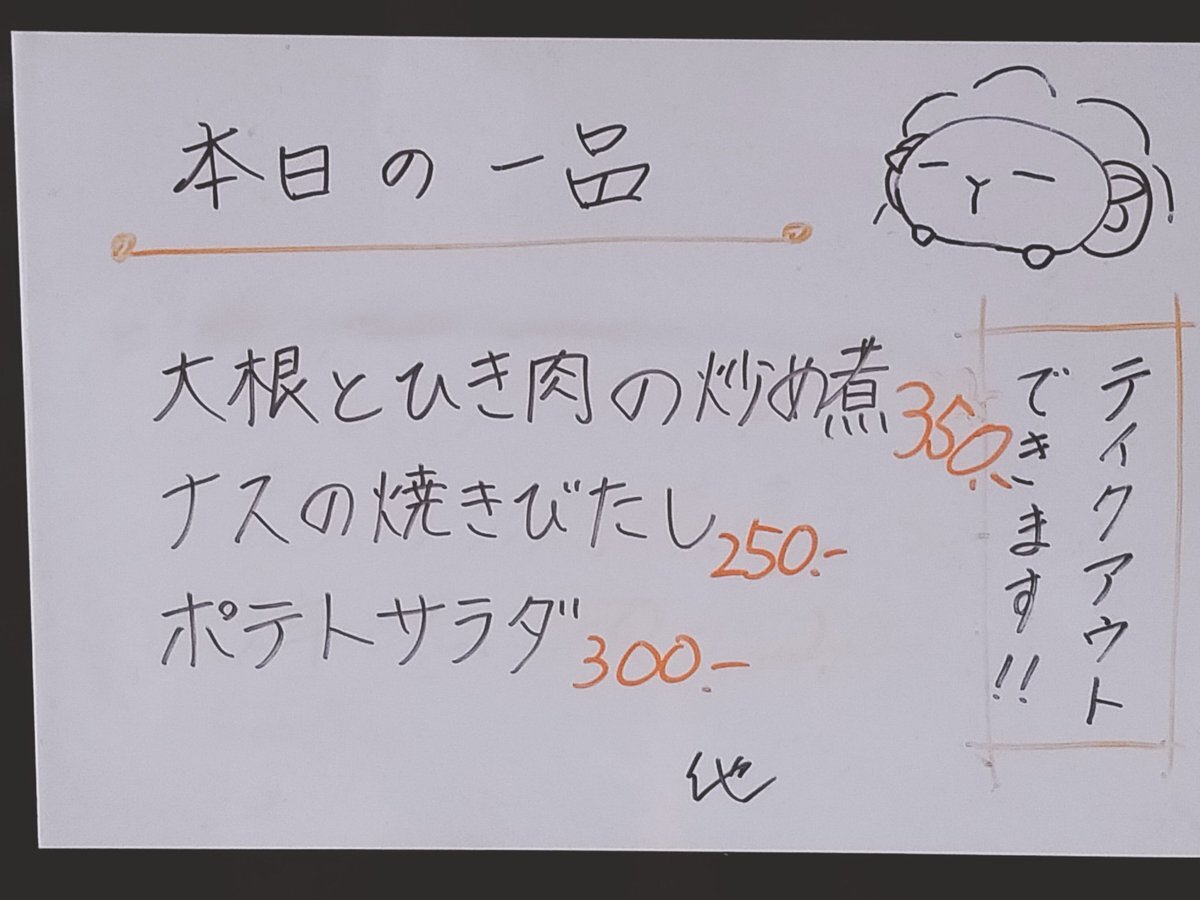 本日の一品
大根とひき肉の炒め煮 350.-
ナスの焼きびたし 250.-
ポテトサラダ 300.-
他
ティクアウト
できます!!